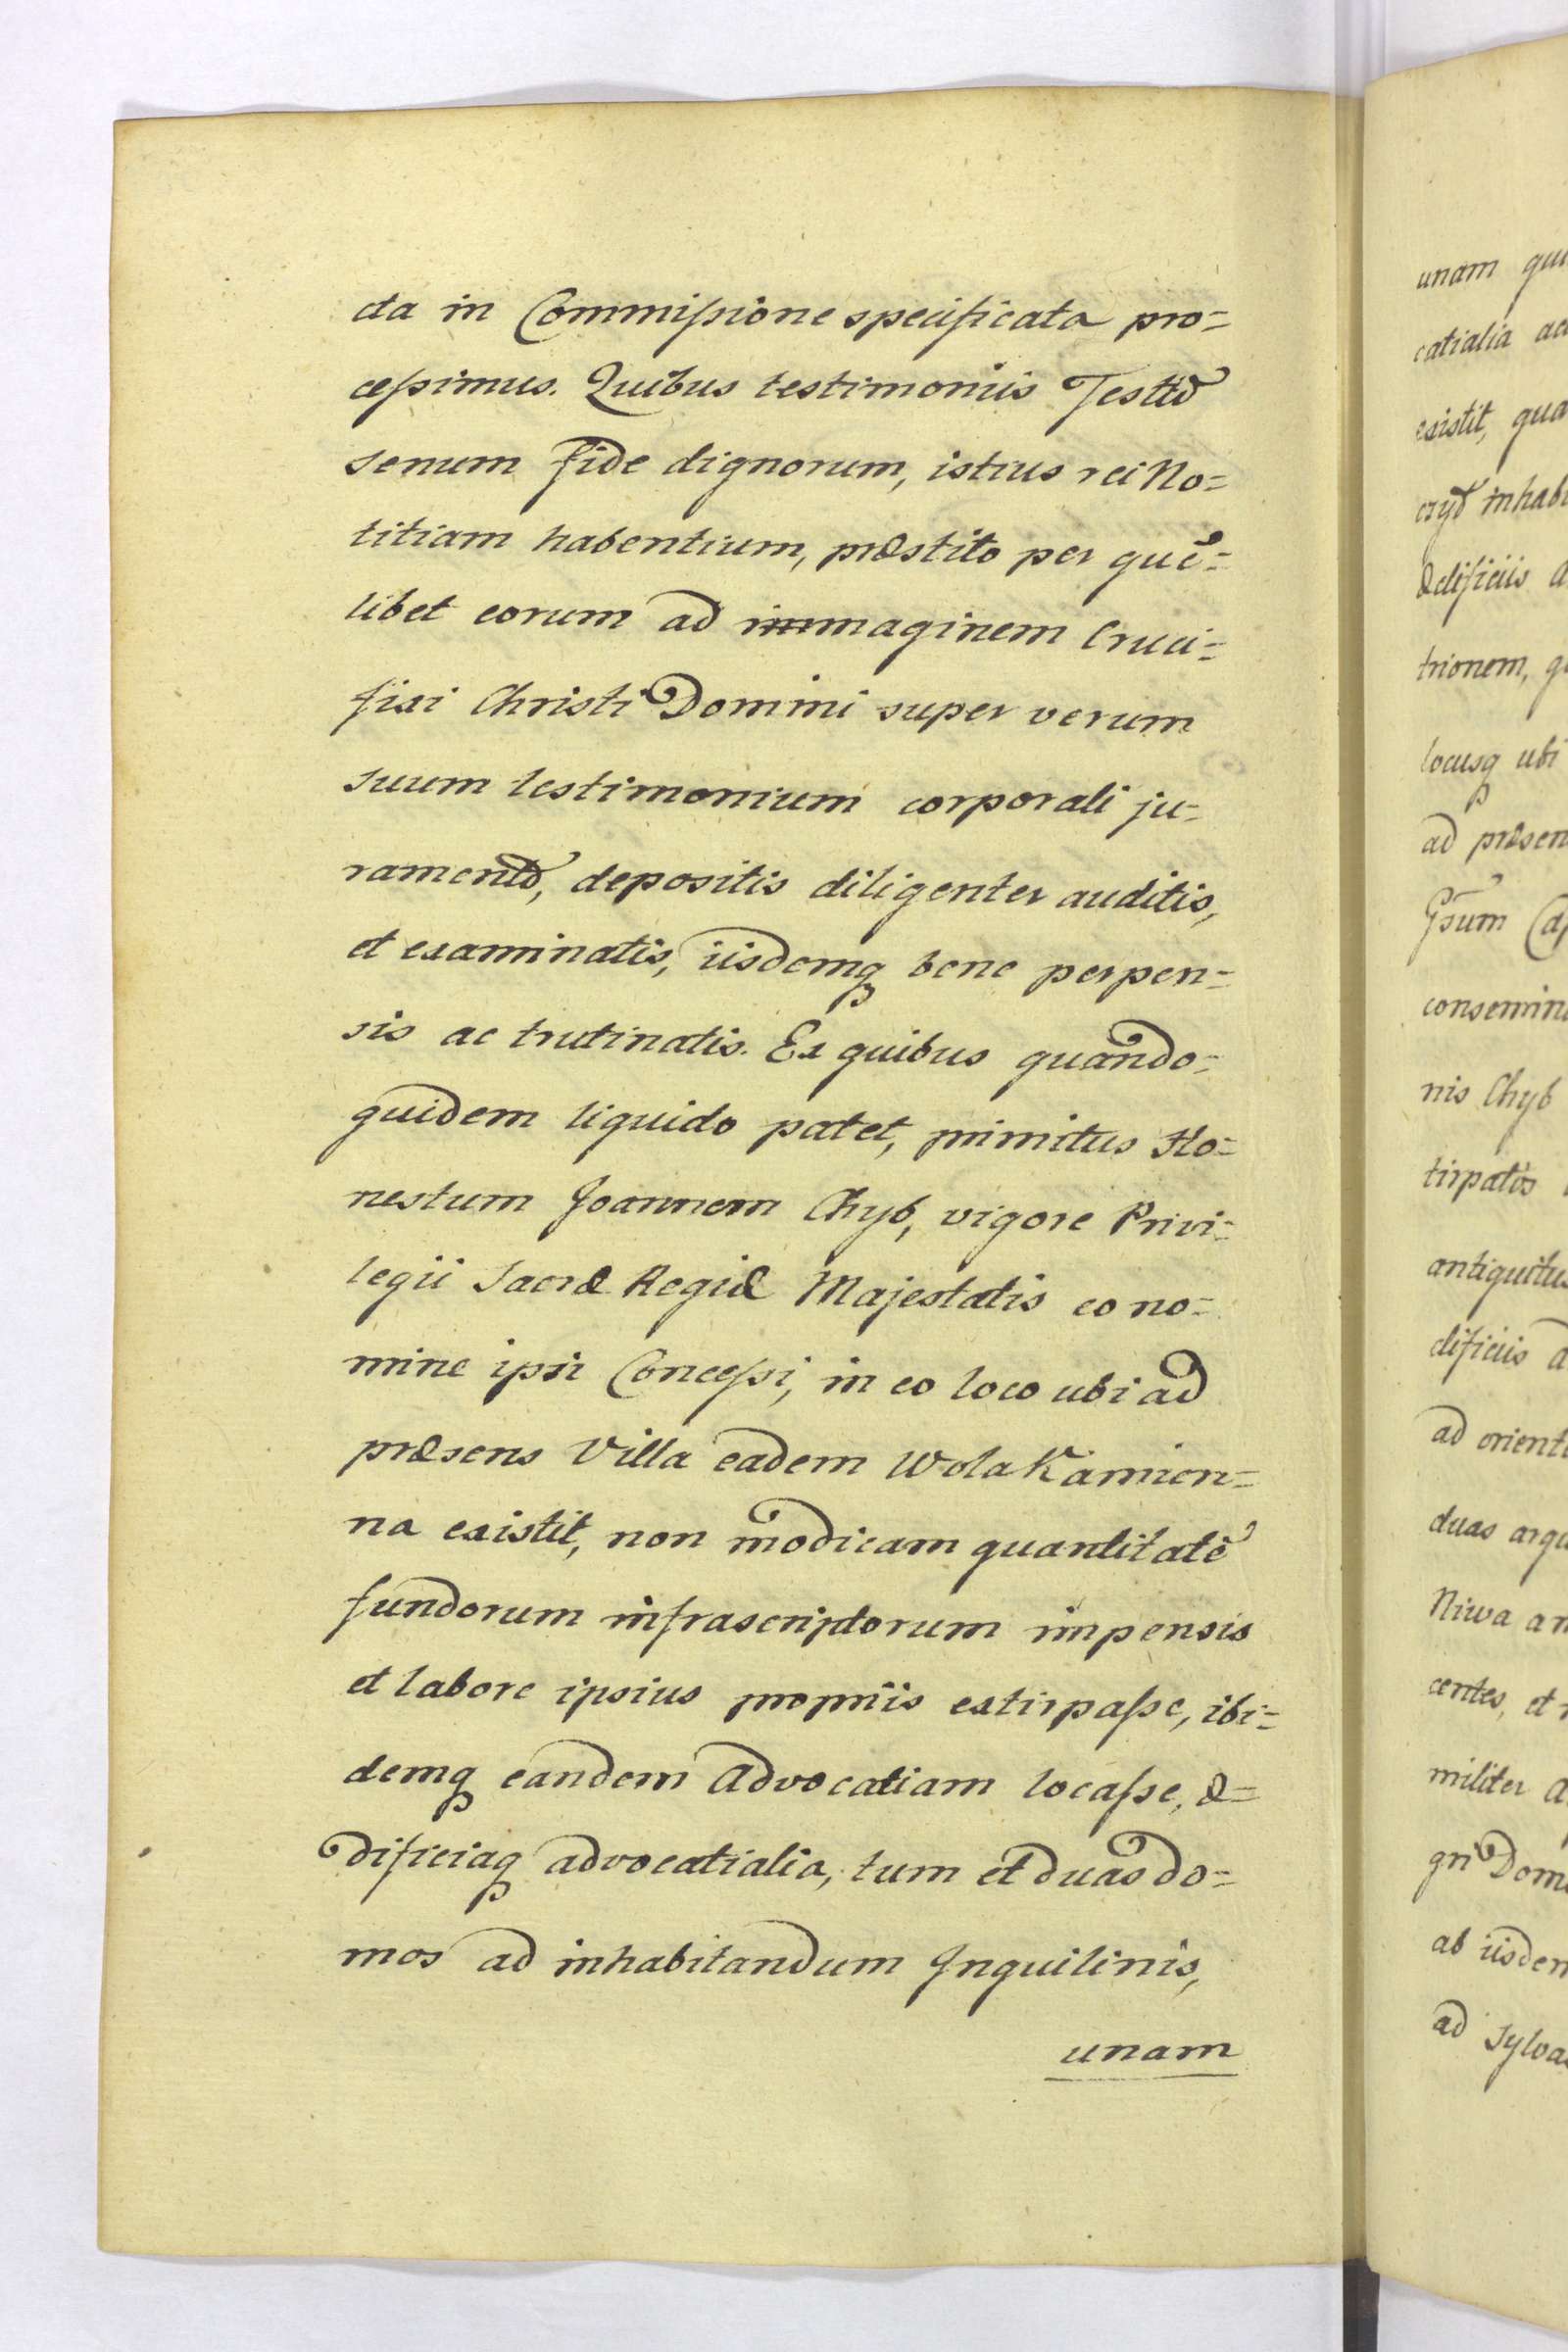 cta in Commissione specificata pro=
cessimus. Quibus testimoniis Testiũ
senum fide dignorum, istius rei No=
titiam habentium, præstito per quẽ=
libet eorum ad immaginem Cruci=
fixi Christi Domini super verum
suum testimonium corporali ju=
ramento, depositis diligenter auditis,
et examinatis, iisdemq bene perpen=
sis ac trutinatis. Ex quibus quando=
quidem liquido patet, primitus Ho=
nestum Joannem Chyb, vigore Privi=
legii Sacræ Regiæ Majestatis eo no=
mine ipsi Concessi, in eo loco ubi ad
præsens Villa eadem Wola Kamion=
na existit, non modicam quantitatẽ
fundorum infrascriptorum impensis
et labore ipsius propriis extirpasse, ibi=
demq eandem Advocatiam locasse, æ=
dificiaq advocatialia, tum et duas do=
mos ad inhabitandum Inquilinis,
unam
unam
catialia
existit,
ædificiis
trionem,
locusq ubi
ad
nis Chyb
dificiis
ad
duas
Niwa
centes, et
militer
ad